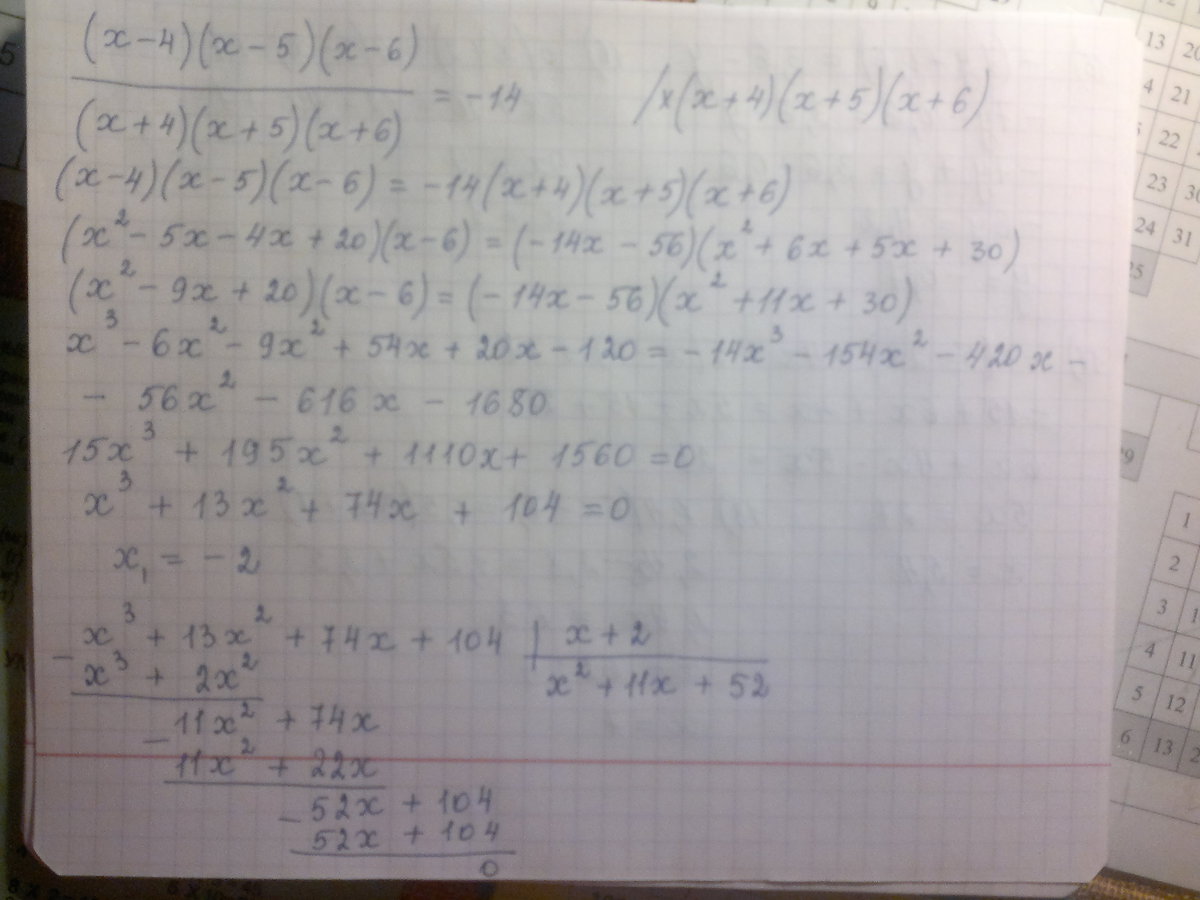 (x-4)(x-5)(x-6)
= -14 /×(x+4)(x+5)(x+6)
(x+4)(x+5)(x+6)
(x-4)(x-5)(x-6) = -14(x+4)(x+5)(x+6)
(x² - 5x - 4x + 20)(x-6) = (-14x - 56)(x² + 6x + 5x + 30)
(x² - 9x + 20)(x - 6) = (-14x - 56)(x² + 11x + 30)
x³ - 6x² - 9x² + 54x + 20x - 120 = -14x³ - 154x² - 420x -
- 56x² - 616x - 1680
15x³ + 195x² + 1110x + 1560 = 0
x³ + 13x² + 74x + 104 = 0
x₁ = -2
- x³ + 13x² + 74x + 104 | x + 2
x³ + 2x² x² + 11x + 52
- 11x² + 74x
11x² + 22x
- 52x + 104
52x + 104
0
5
13 20
4 21
22
23 30
24 31
25
29
1
2
3
4 11
5 12
6 13